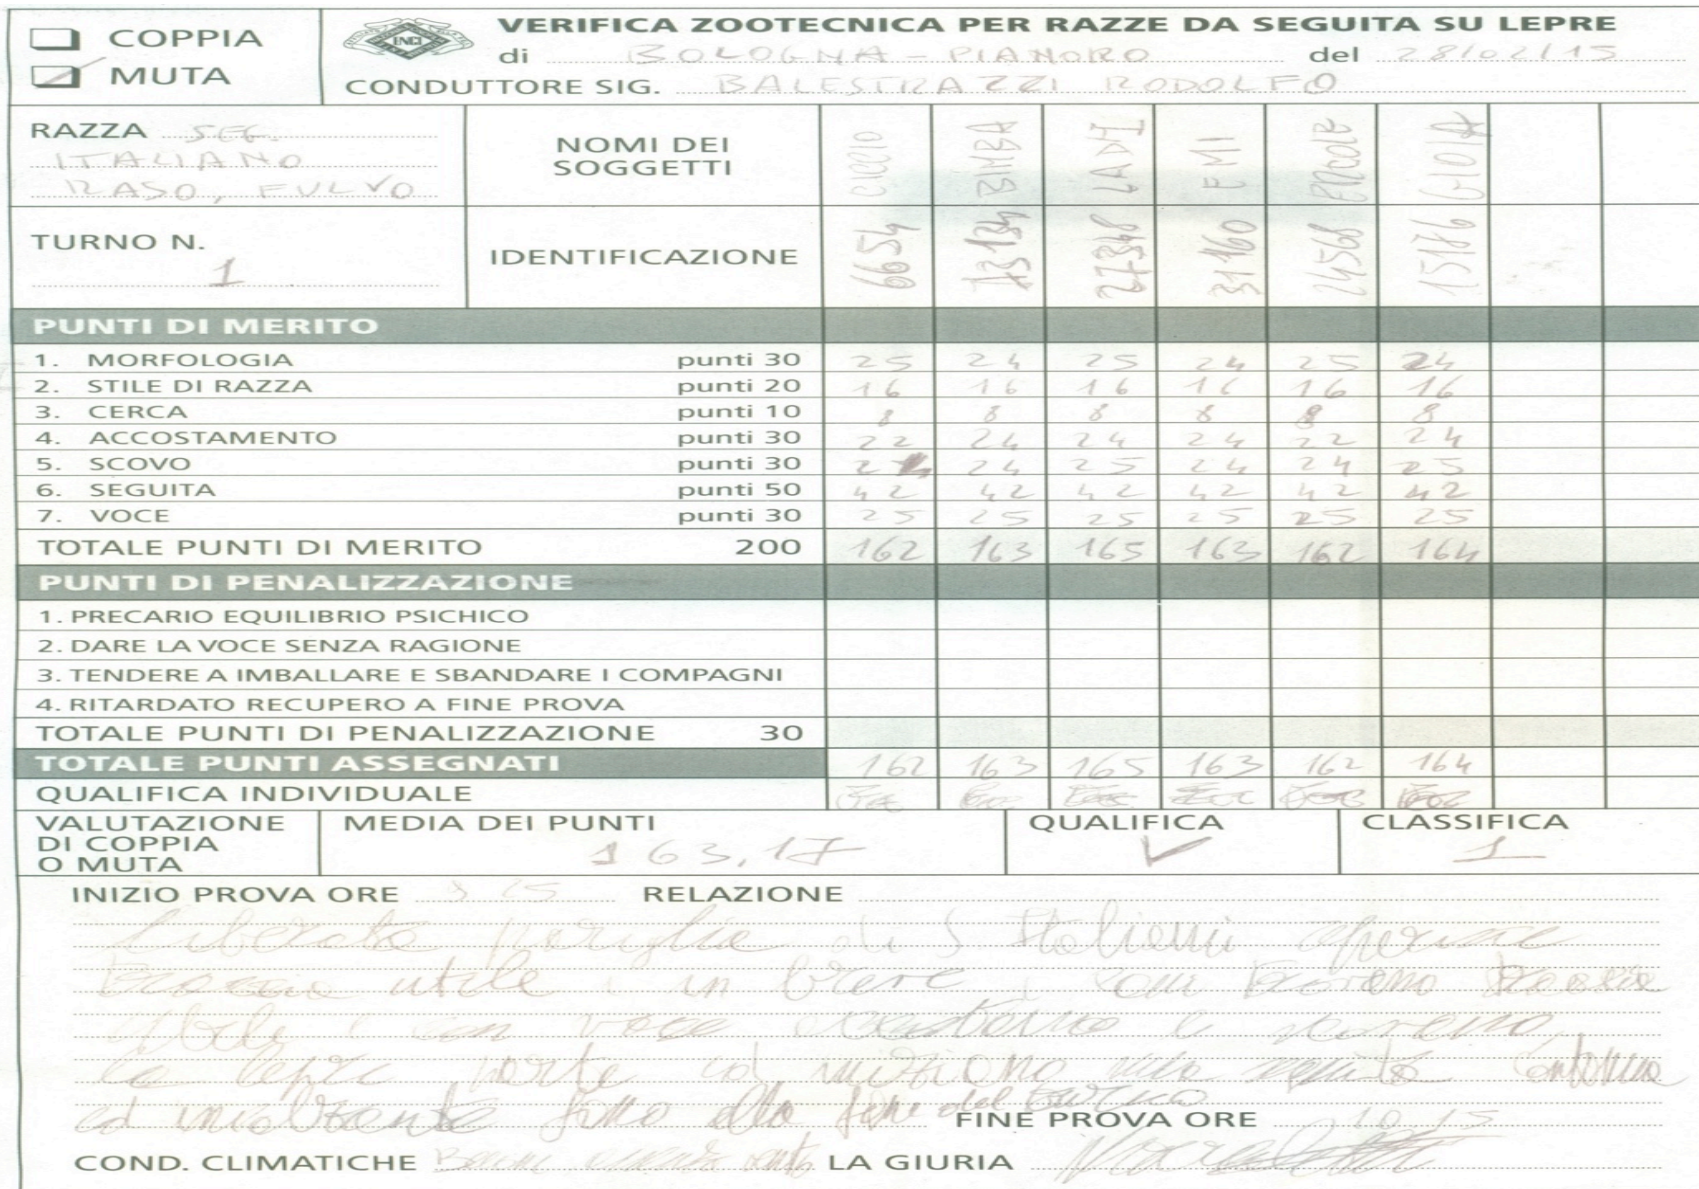 COPPIA
MUTA
ENCI
VERIFICA ZOOTECNICA PER RAZZE DA SEGUITA SU LEPRE
di BOLOGNA - PIANORO del 28/02/15
CONDUTTORE SIG. BALESTRAZZI RODOLFO
RAZZA SEG.
ITALIANO
RASO, FULVO
NOMI DEI
SOGGETTI
CICCIO BIMBA LADI EMI GIOIA
TURNO N.
1
IDENTIFICAZIONE 6654 13134 27348 31160 24568 15186
PUNTI DI MERITO
1. MORFOLOGIA punti 30 25 24 25 24 25 24
2. STILE DI RAZZA punti 20 16 16 16 16 16 16
3. CERCA punti 10 8 8 8 8 8 8
4. ACCOSTAMENTO punti 30 22 24 24 24 22 24
5. SCOVO punti 30 24 24 25 24 24 25
6. SEGUITA punti 50 42 42 42 42 42 42
7. VOCE punti 30 25 25 25 25 25 25
TOTALE PUNTI DI MERITO 200 162 163 165 163 162 164
PUNTI DI PENALIZZAZIONE
1. PRECARIO EQUILIBRIO PSICHICO
2. DARE LA VOCE SENZA RAGIONE
3. TENDERE A IMBALLARE E SBANDARE I COMPAGNI
4. RITARDATO RECUPERO A FINE PROVA
TOTALE PUNTI DI PENALIZZAZIONE 30
TOTALE PUNTI ASSEGNATI 162 163 165 163 162 164
QUALIFICA INDIVIDUALE
VALUTAZIONE
DI COPPIA
O MUTA
MEDIA DEI PUNTI
163,17
QUALIFICA
CLASSIFICA
1
INIZIO PROVA ORE RELAZIONE
Liberata pariglia di S Italiani
utile in breve i cani
e con voce e
la lepre parte ed iniziano una seguita
ed fino alla fine del turno
FINE PROVA ORE 10.15
COND. CLIMATICHE LA GIURIA